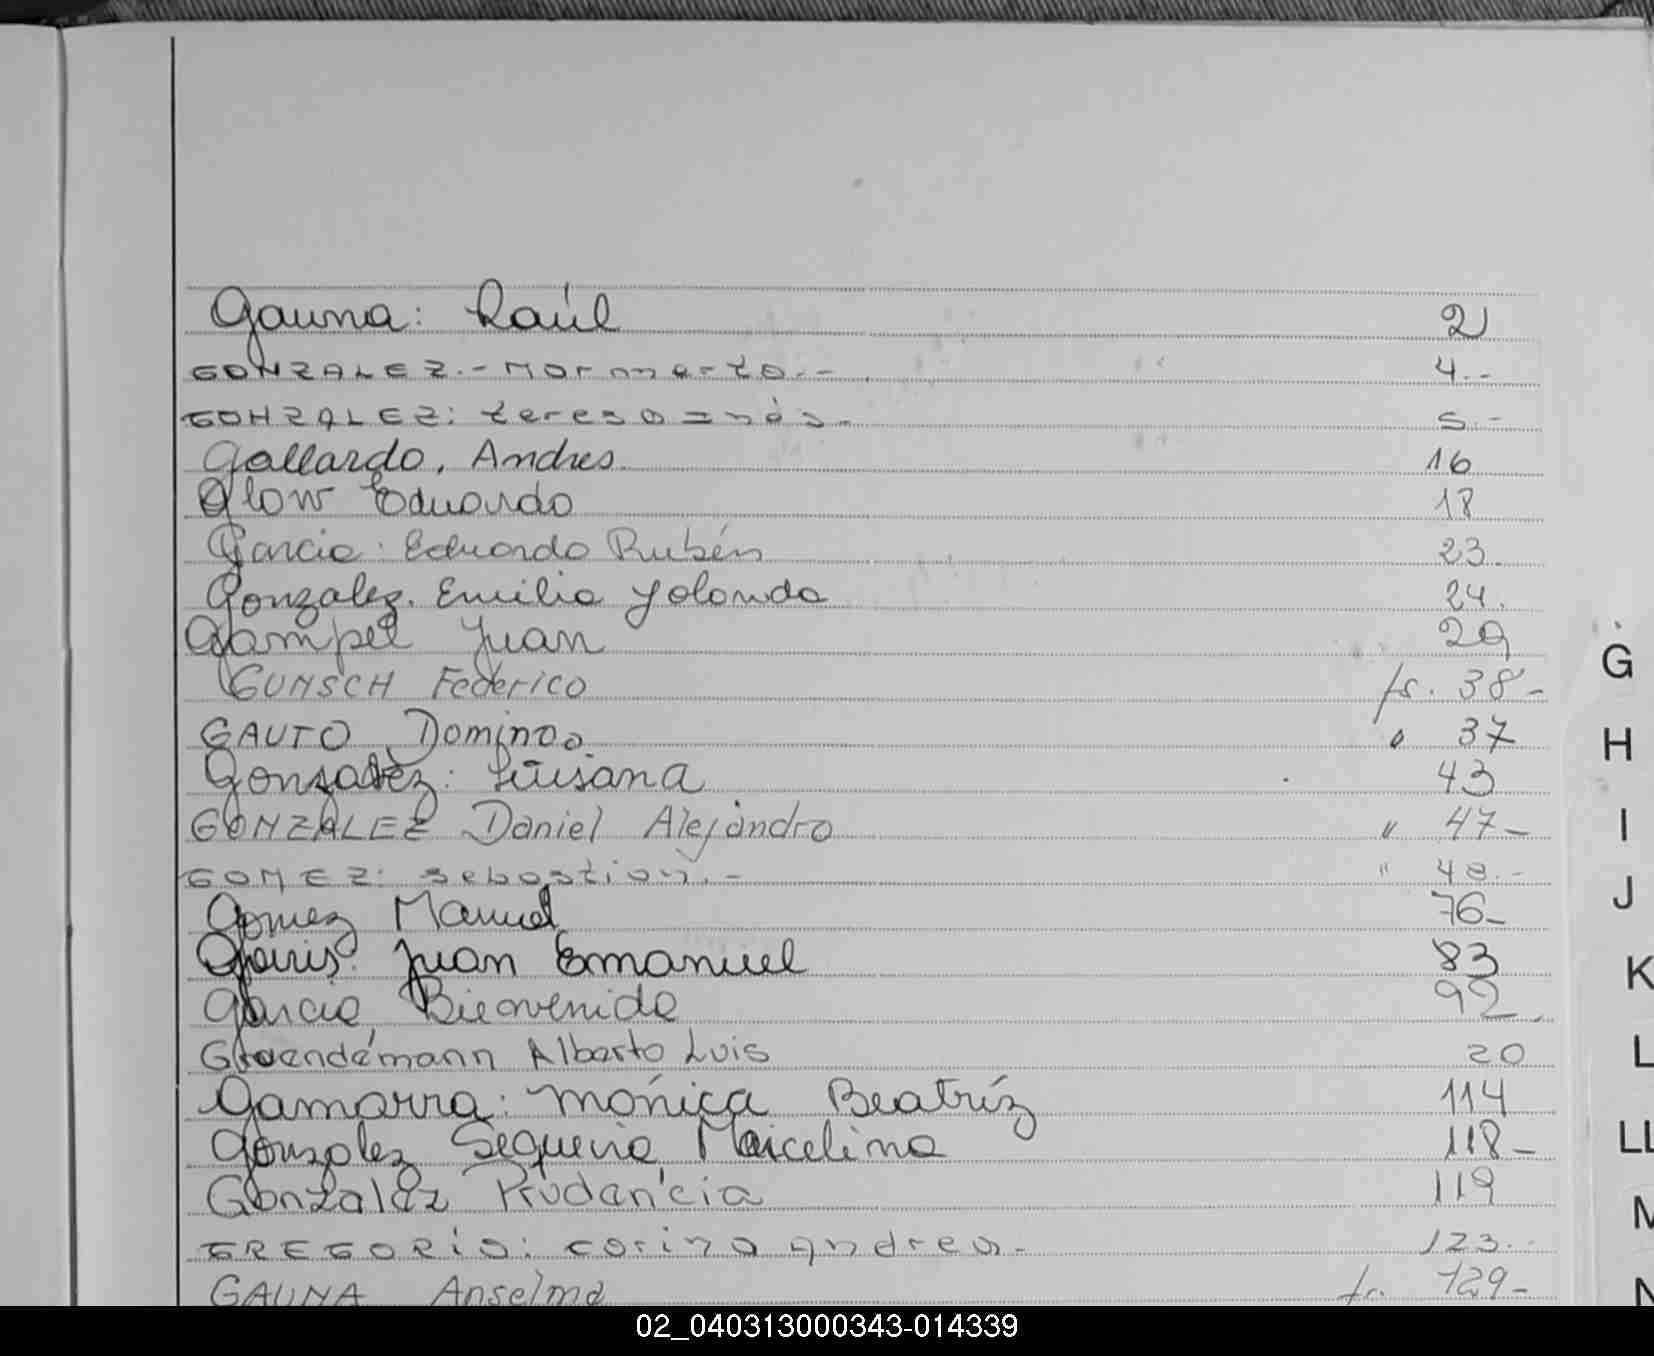 Gauna: Raúl 2
GONZALEZ.- Norma 4.-
GONZALEZ: teresa inés.- 5.-
Gallardo, Andres. 16
Glow Eduardo 18
Garcia: Eduardo Rubén 23.
Gonzalez. Emilia Yolanda 24.
Gampel Juan 29
GUNSCH Federico fs. 38-
GAUTO Domingo " 37
Gonzalez: Susana 43
GONZALEZ Daniel Alejandro " 47-
GOMEZ: sebastian.- " 48.-
Gomez Manuel 76-
Juan Emanuel 83
Garcia, Bienvenida 92
Alberto Luis 20
Gamarra: Mónica Beatríz 114
Gonzalez Sequeira, Marcelina 118-
Gonzalez Prudencia 119
GREGORIO: corina andrea.- 123.-
GAUNA Anselma fs. 129-
G
H
I
J
K
L
LL
M
N
02_040313000343-014339